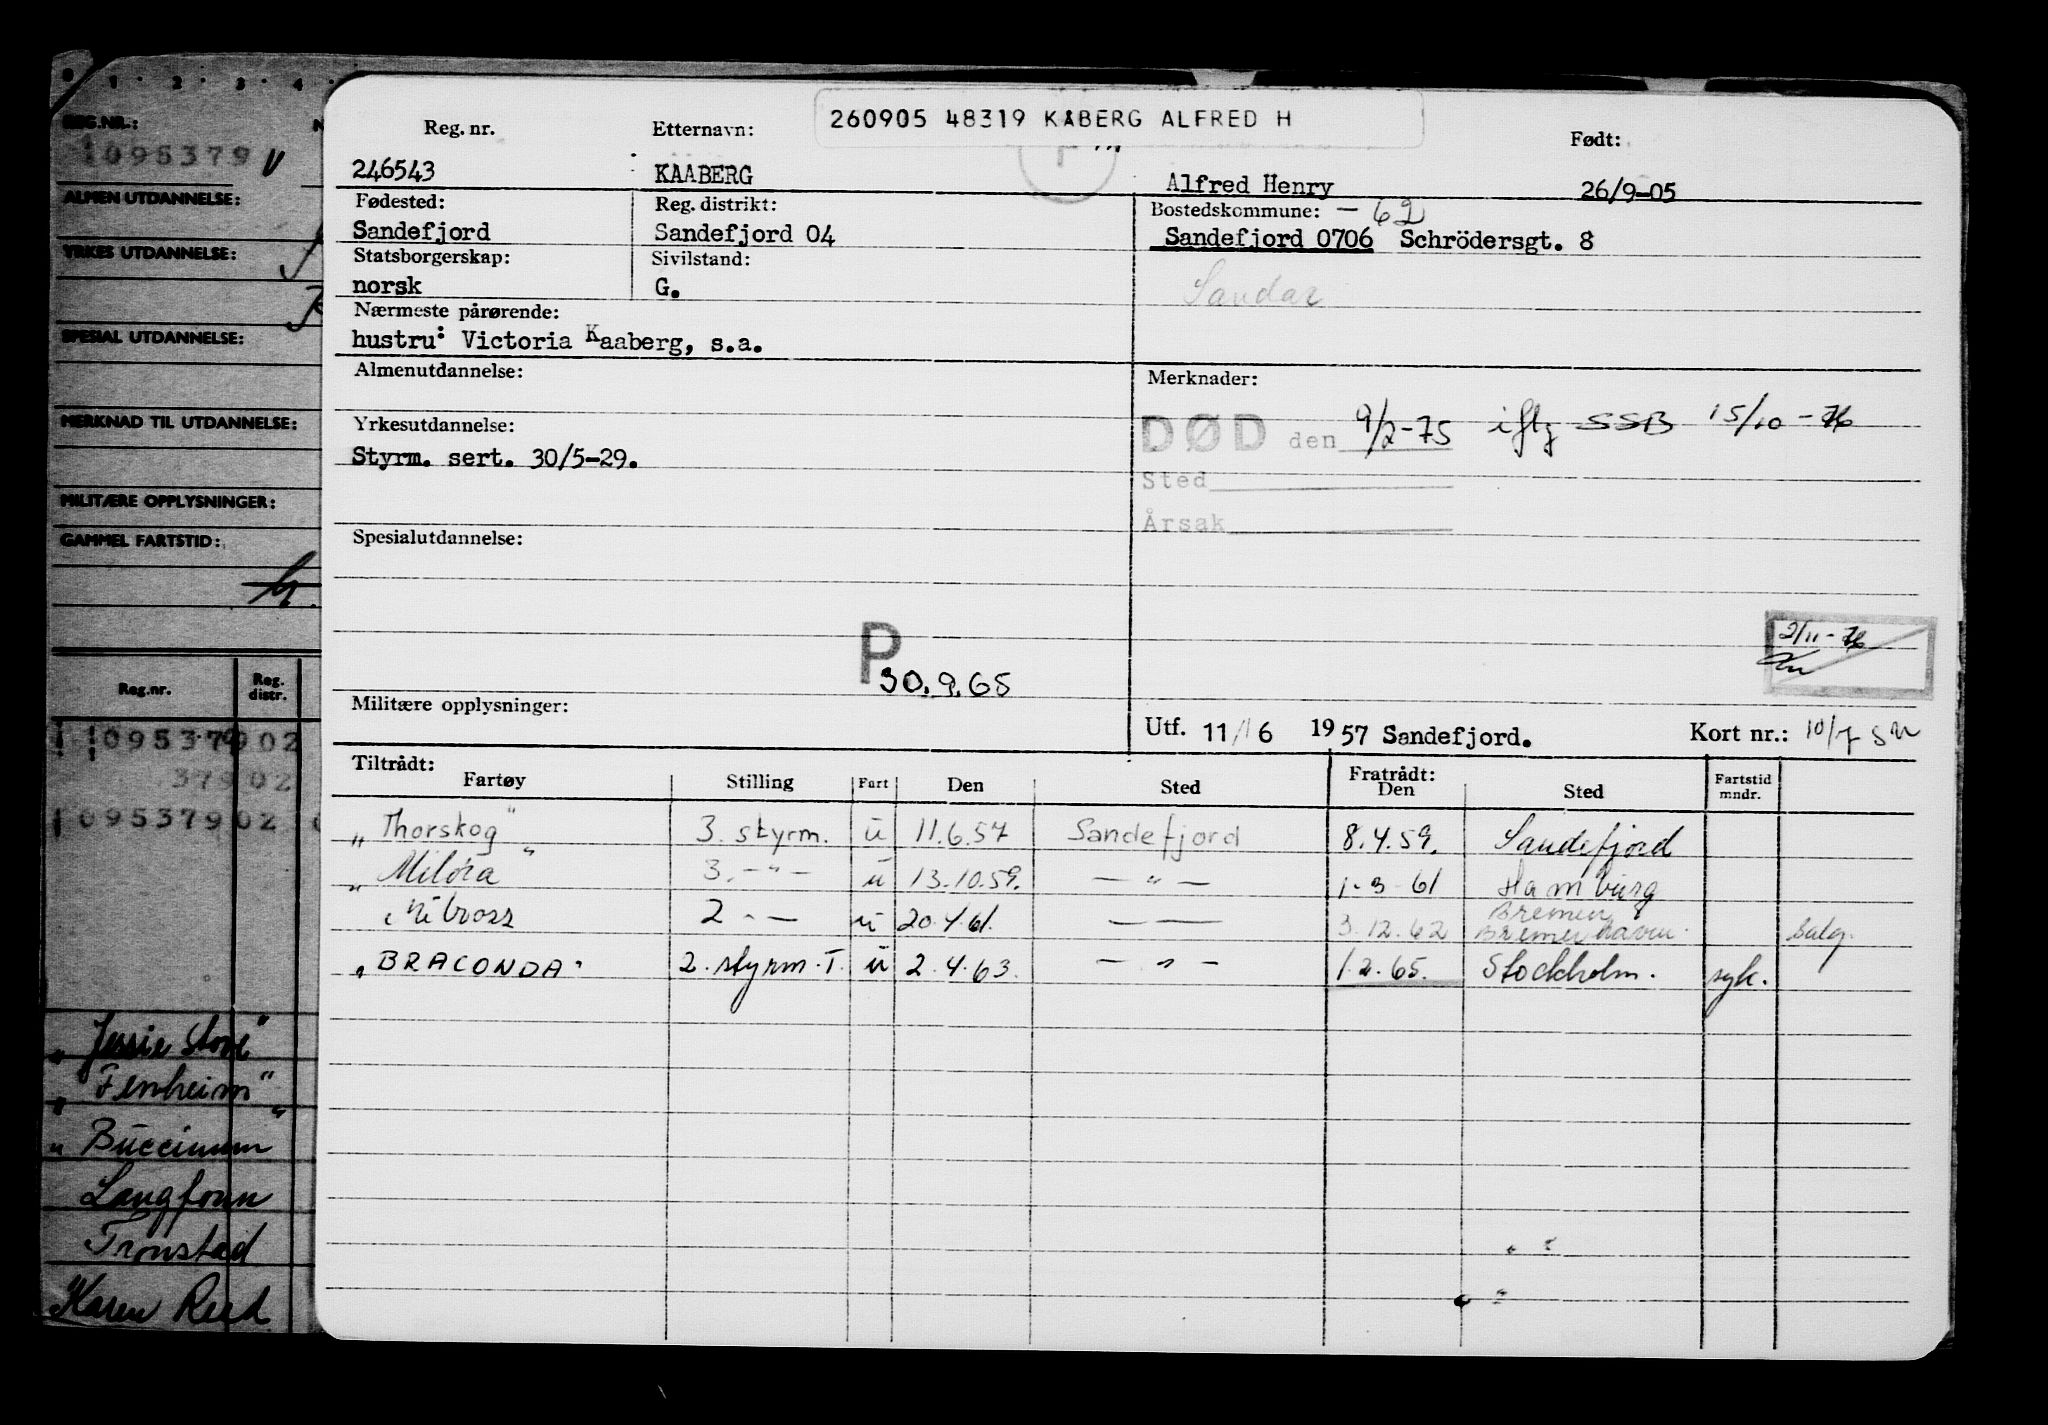 1 2 3 4
REG.NR.:
1095379 V
ALMEN UTDANNELSE:
YRKES UTDANNELSE:
SPESIAL UTDANNELSE:
MERKNAD TIL UTDANNELSE:
MILITÆRE OPPLYSNINGER:
GAMMEL FARTSTID:
Reg.nr. Reg. distr.
1095379 02
379 02
1095379 02
"Jessie Stove"
"Fenheim"
"Buccinum"
Langfonn
Tronstad
Karen Reed
260905 48319 KÅBERG ALFRED H
Reg. nr. Etternavn: Født:
246543 KAABERG Alfred Henry 26/9-05
Fødested: Reg. distrikt: Bostedskommune: - 62
Sandefjord Sandefjord 04 Sandefjord 0706 Schrödersgt. 8
Statsborgerskap: Sivilstand:
norsk G. Sandar
Nærmeste pårørende:
hustru: Victoria Kaaberg, s.a.
Almenutdannelse: Merknader:
DØD den 9/2-75 iflg SSB 15/10-76
Yrkesutdannelse:
Styrm. sert. 30/5-29.
Sted
Årsak
Spesialutdannelse:
2/11-76
P
30.9.65
Militære opplysninger:
Utf. 11/6 1957 Sandefjord. Kort nr.: 10/7
Tiltrådt: Fratrådt:
Fartøy Stilling Fart Den Sted Den Sted Fartstid mndr.
"Thorskog" 3. styrm. u 11.6.57 Sandefjord 8.4.59. Sandefjord
"Miløra" 3. -"- u 13.10.59. -"- 1-3-61 Hamburg
2 - - u 20.4.61. - - 3.12.62 Bremen Bremerhaven. Salg.
"BRACONDA" 2. styrm. I. u 2.4.63. -"- 1.2.65. Stockholm. syk.